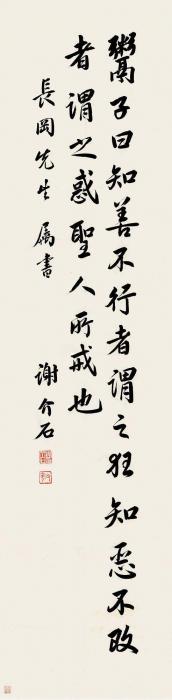 鬻子曰知善不行者謂之狂知惡不改
者謂之惑聖人所戒也
長岡先生屬書
謝介石